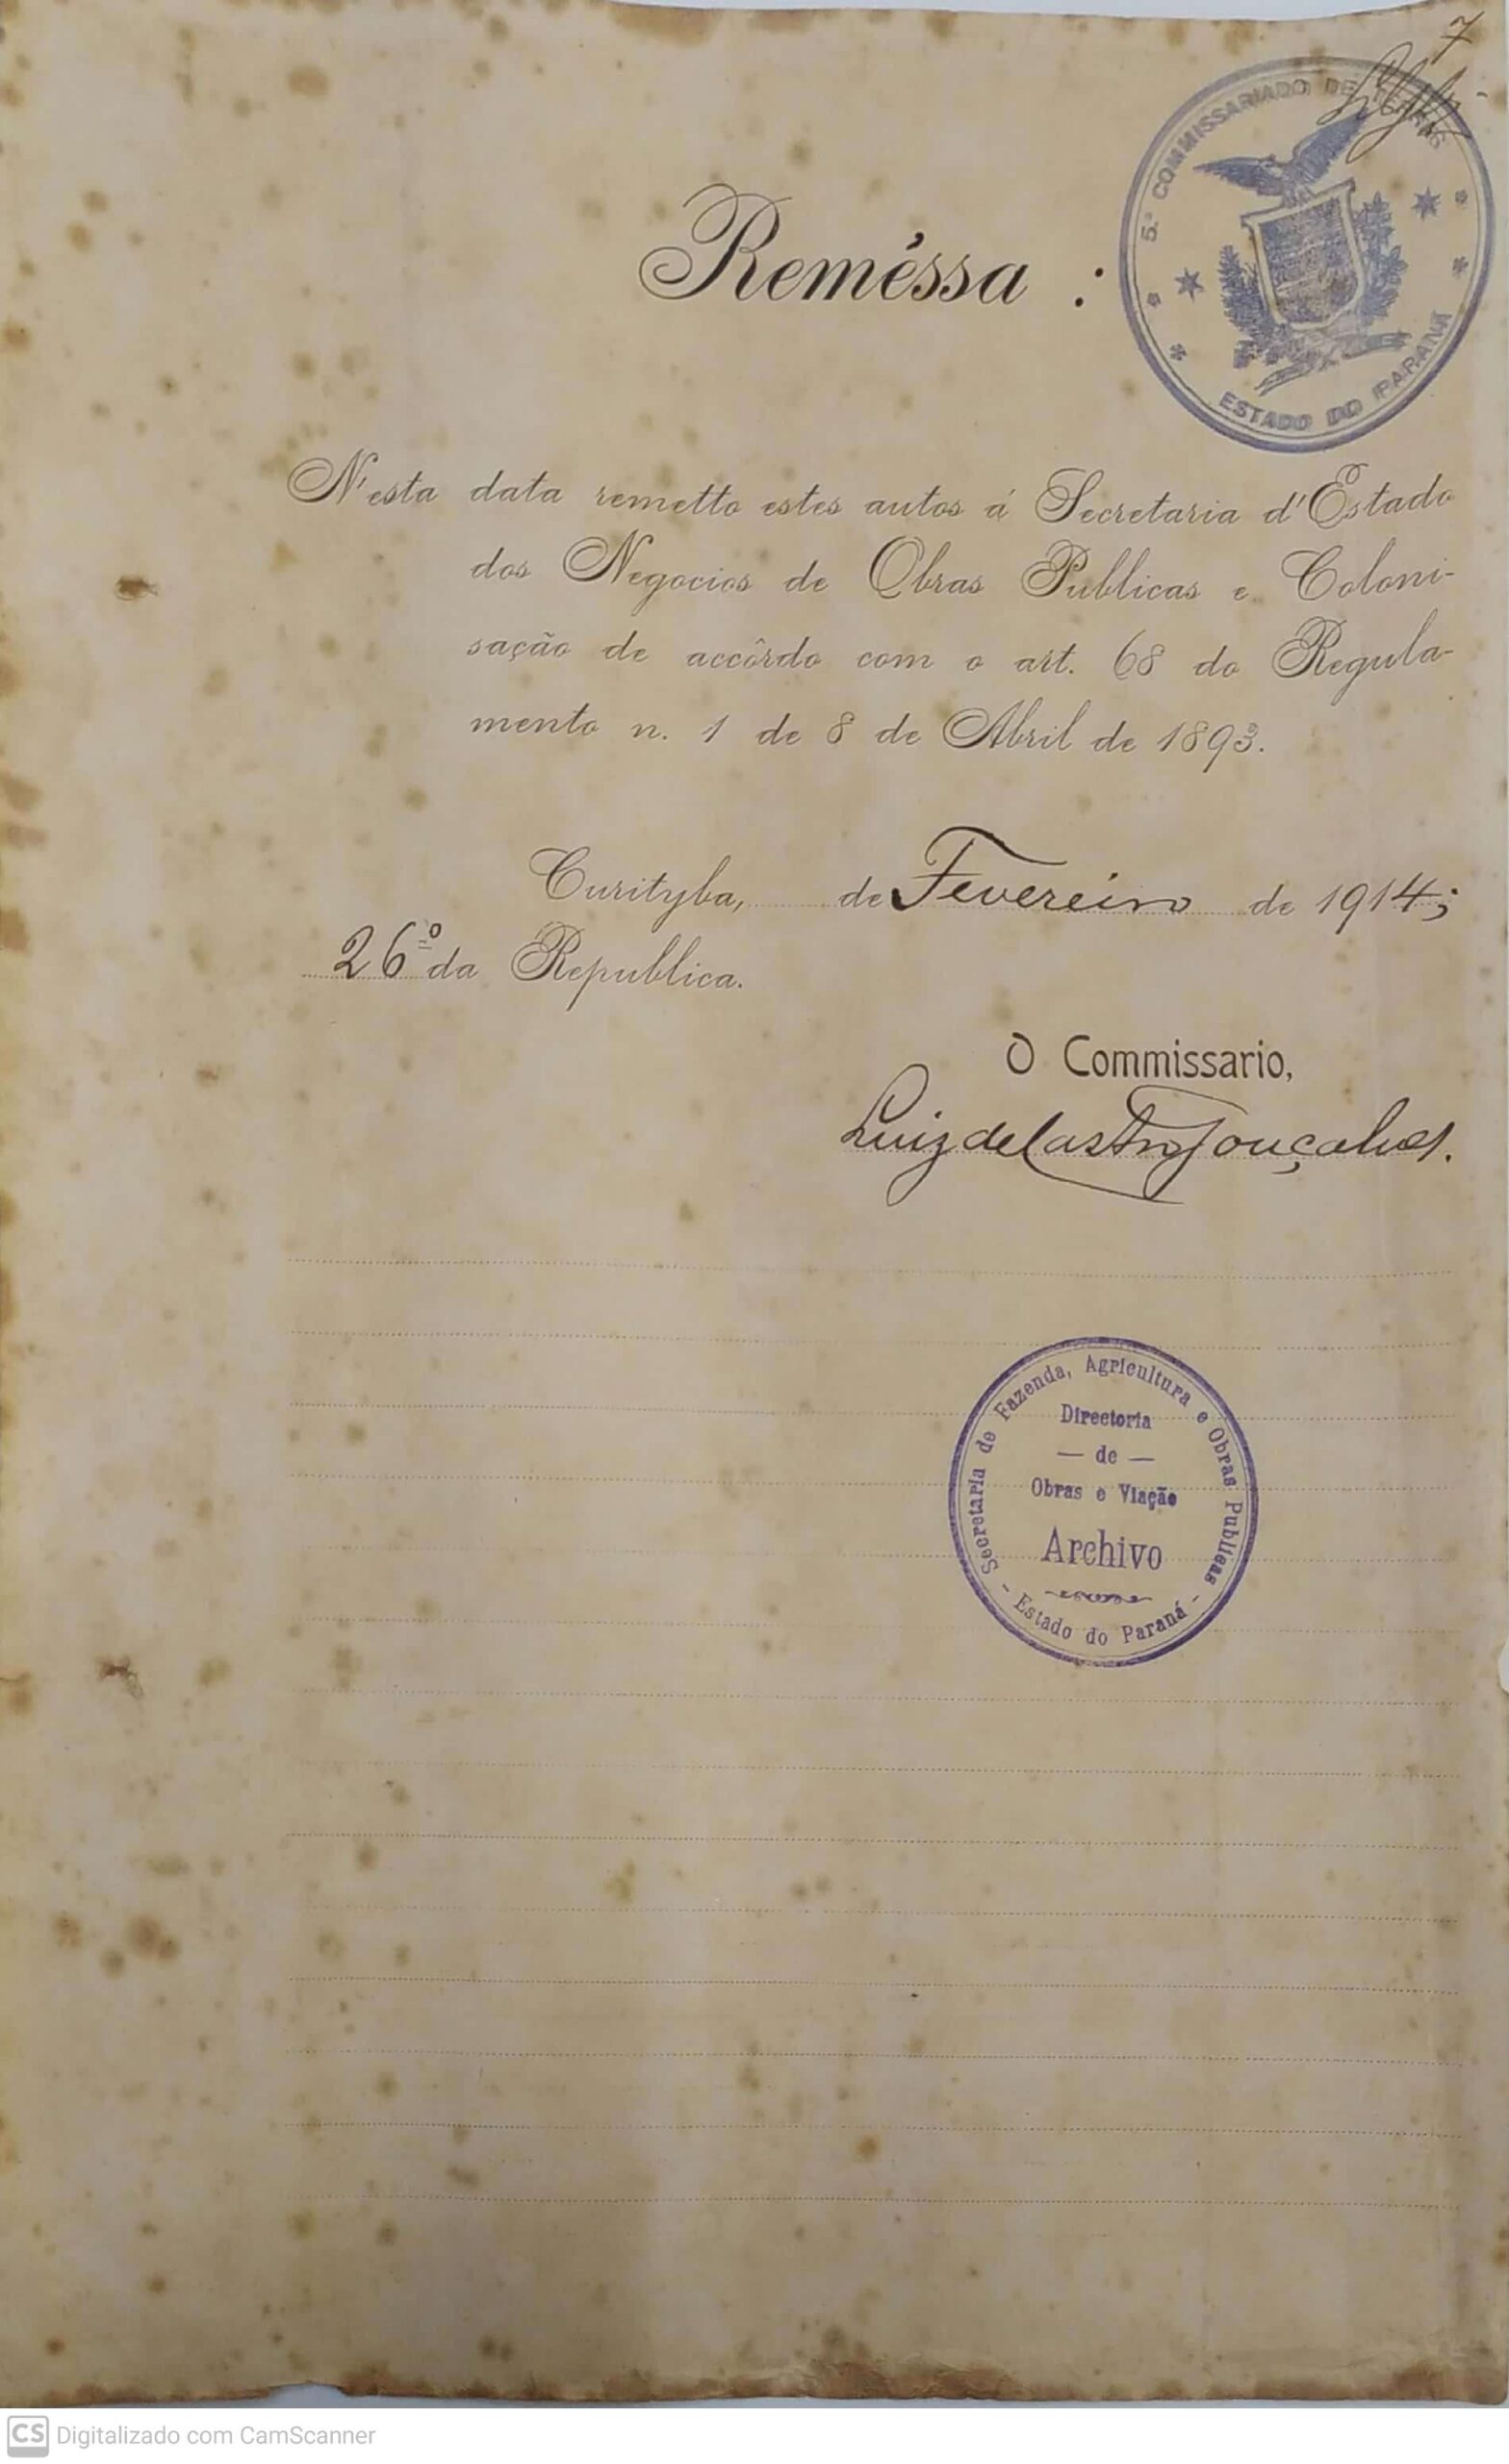 7
5.º COMMISSARIADO DE TERRAS
ESTADO DO PARANÁ
Reméssa :
N'esta data remetto estes autos á Secretaria d'Estado
dos Negocios de Obras Publicas e Coloni-
sação de accôrdo com o art. 68 do Regula-
mento n. 1 de 8 de Abril de 1893.
Curityba, de Fevereiro de 1914;
26º da Republica.
O Commissario,
Luiz de Castro Gonçalves.
Secretaria de Fazenda, Agricultura e Obras Publicas
Directoria
— de —
Obras e Viação
Archivo
- Estado do Paraná -
CS Digitalizado com CamScanner